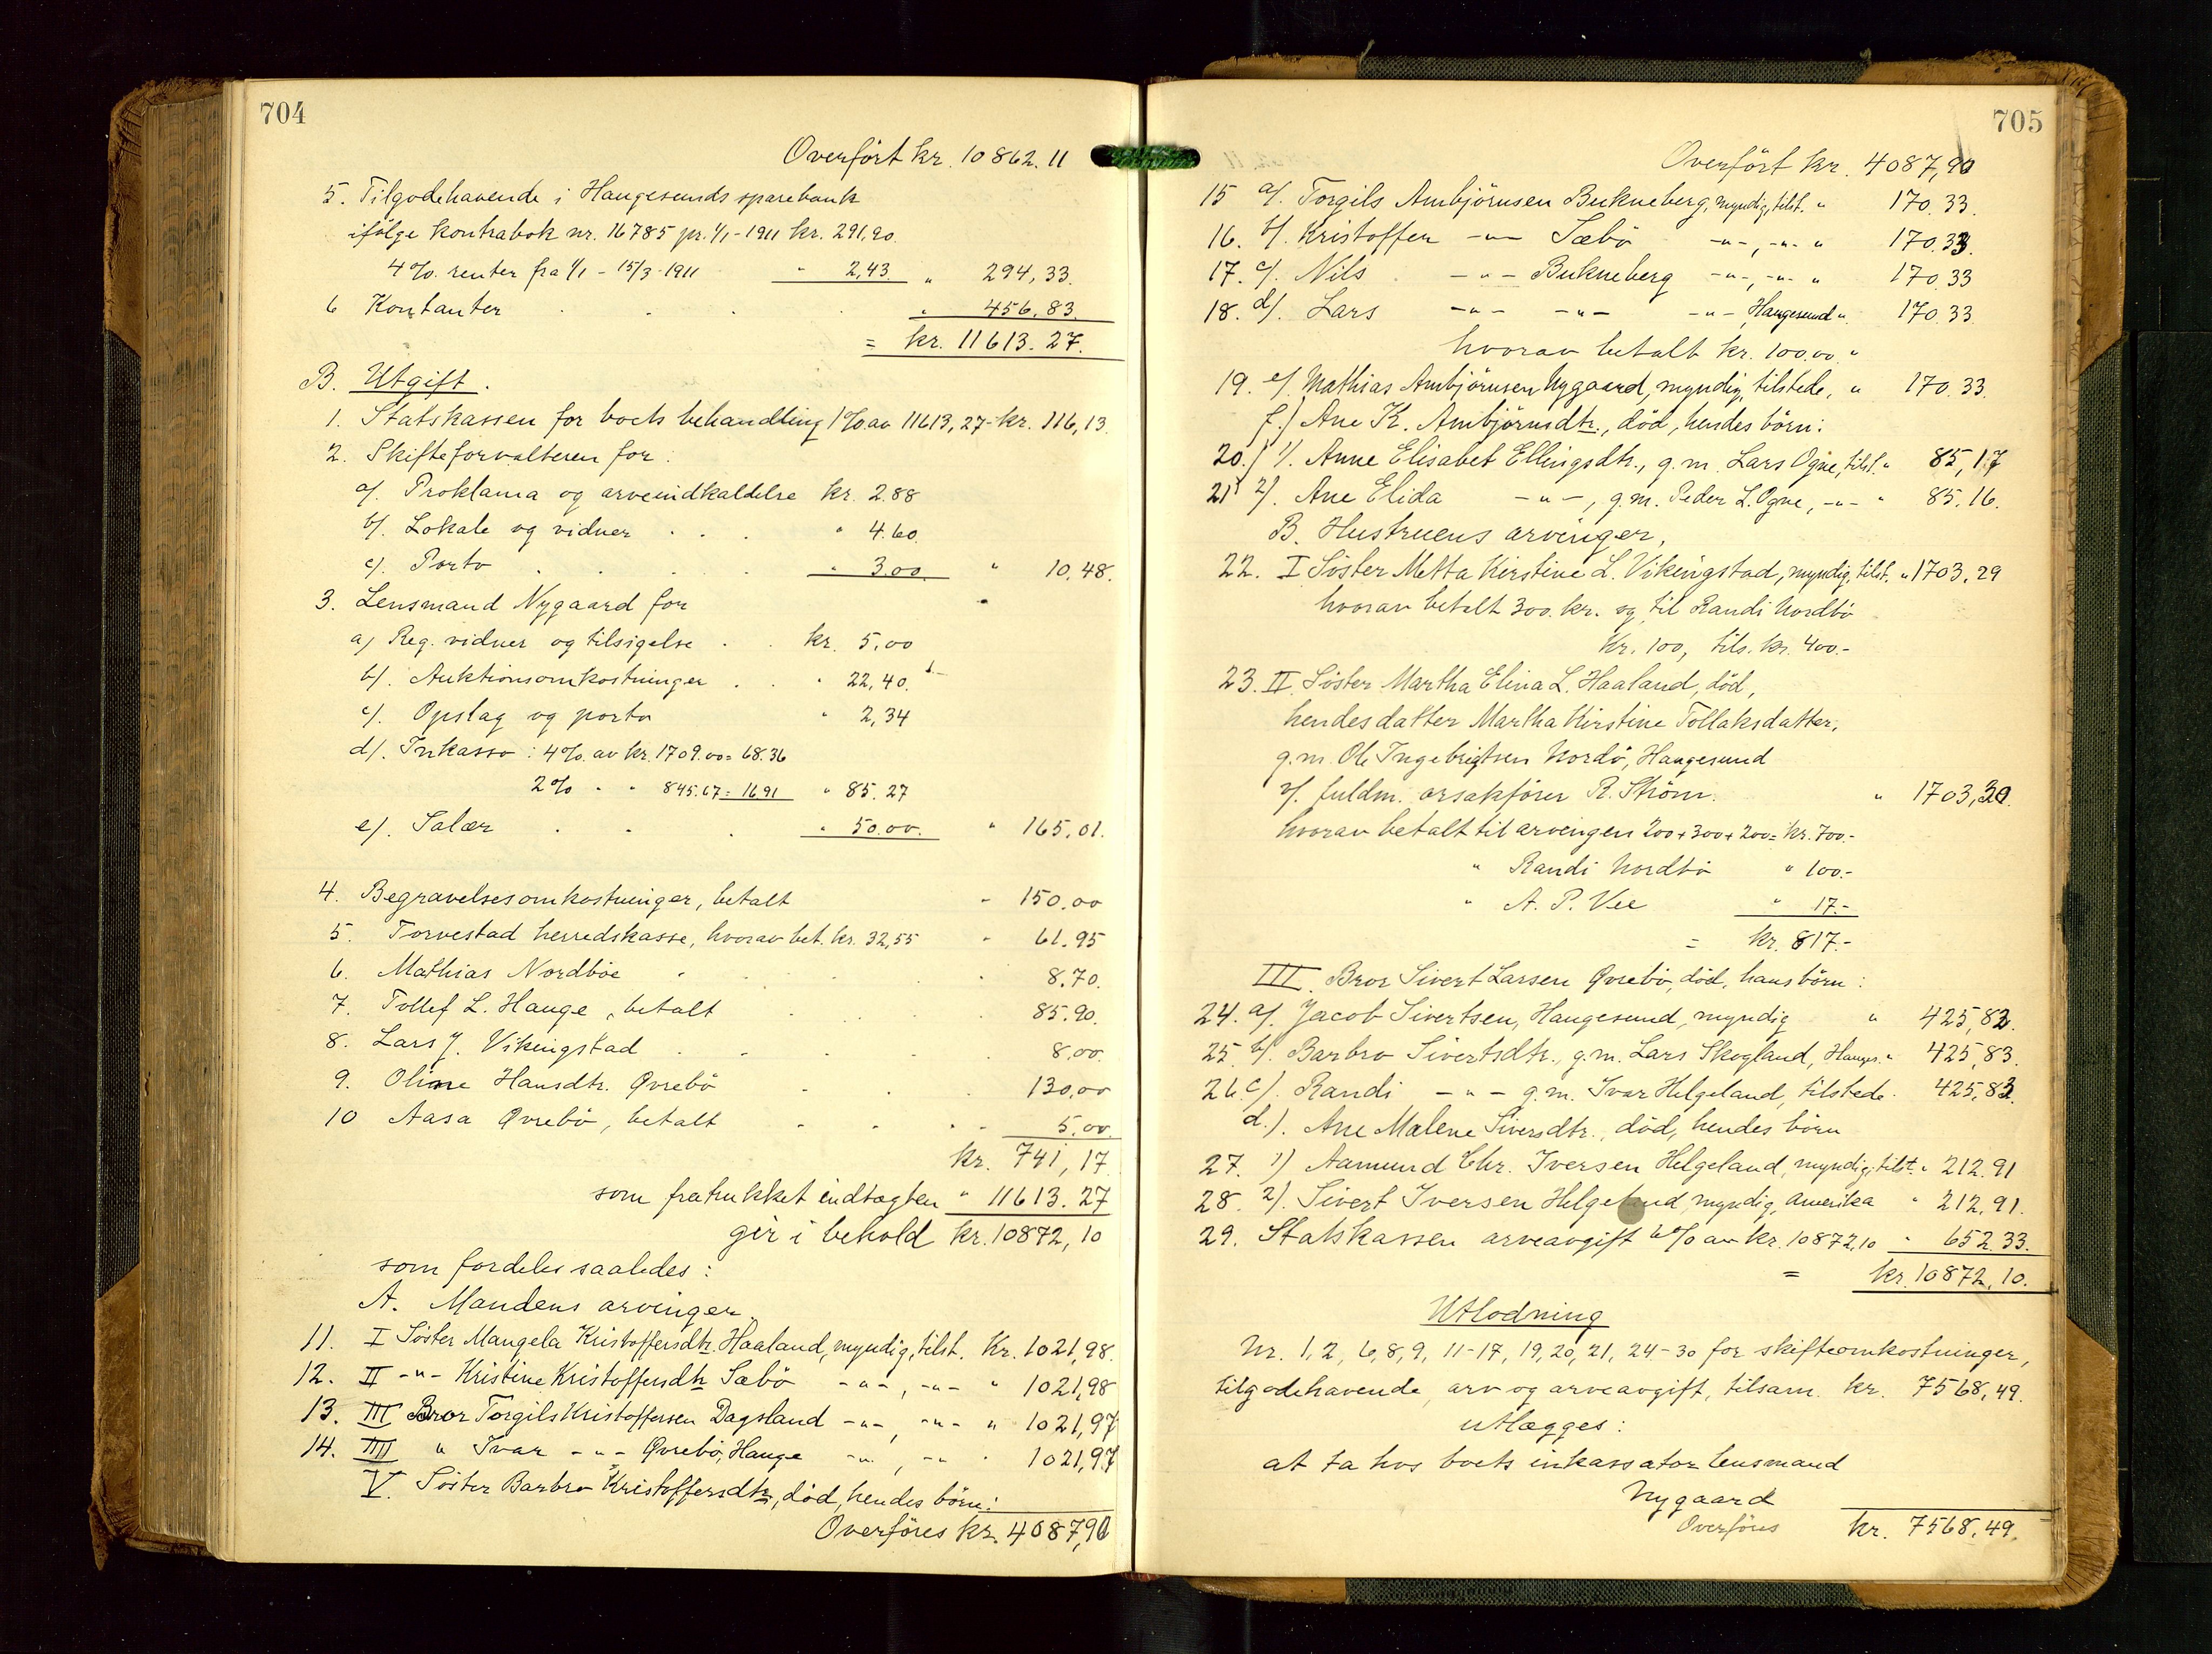 704
Overført kr. 10862.11
5. Tilgodehavende i Haugesunds sparebank
ifølge kontrabok nr. 16785 pr. 1/1-1911 kr. 291,90.
4% renter fra 1/1 - 15/3-1911 " 2,43. " 294,33.
6 Kontanter . . . . " 456,83.
= kr. 11613.27.
B. Utgift.
1. Statskassen for boets behandling 1% av 11613,27- kr. 116,13.
2. Skifteforvalteren for:
a/. Proklama og arveindkaldelse kr. 2.88
b/. Lokale og vidner . . . " 4.60.
c/. Porto . . . . " 3.00. " 10,48.
3. Lensmand Nygaard for
a/ Reg. vidner og tilsigelse . . kr. 5,00
b/. Auktionsomkostninger . . " 22,40.
c/. Opslag og porto " 2,34
d/. Inkasso: 4% av kr. 1709.00 = 68.36
2% " " 845.67 = 16.91 " 85.27
e/. Salær . . . " 50.00. " 165,01.
4. Begravelsesomkostninger, betalt " 150,00
5. Torvestad herredskasse, hvorav bet. kr. 32,55 " 61.95
6. Mathias Nordbøe . . . . 8.70.
7. Tollef L. Hauge, betalt . . . . 85.90.
8. Lars J. Vikingstad . . . . . 8,00.
9. Oline Hansdtr. Øvrebø . . . 130,00
10 Aasa Øvrebø, betalt . . . . 5.00.
kr. 741,17
som fratrukket indtægten " 11613.27
gir i behold kr. 10872,10
som fordeles saaledes:
A. Mandens arvinger.
11. I Søster Mangela Kristoffersdtr. Haaland, myndig, tilst. Kr. 1021,98.
12. II -"- Kristine Kristoffersdtr Sæbø -"-, -"- " 1021,98
13. III Bror Torgils Kristoffersen Dagsland -"-, -"- " 1021,97
14. IIII " Ivar -"- Øvrebø, Hauge -"-, -"- " 1021,97
V. Søster Barbro Kristoffersdtr, død, hendes børn:
Overføres kr. 4087,90
705
Overført kr. 4087,90
15 a/. Torgils Ambjørnsen Bukneberg, myndig, tilst. " 170.33.
16. b/. Kristoffer -"- Sæbø -"-, -"- " 170.33.
17. c/. Nils -"- Bukneberg -"-, -"- " 170.33
18. d/. Lars -"- -"- -"- Haugesund " 170.33
hvorav betalt kr. 100.00 "
19. e/. Mathias Ambjørnsen Nygaard, myndig, tilstede, " 170.33.
f.) Ane K. Ambjørnsdtr., død, hendes børn:
20.) 1/. Anne Elisabet Ellingsdtr., g.m. Lars Ogne, tilst. " 85,17
21) 2/. Ane Elida -"-, g.m. Peder L. Ogne, -"- " 85.16.
B. Hustruens arvinger,
22. I Søster Metta Kirstine L. Vikingstad, myndig, tilst. " 1703,29
hvorav betalt 300. kr. og til Randi Nordbø
Kr. 100, tils. kr. 400.-
23. II. Søster Martha Elina L. Haaland, død,
hendes datter Martha Kirstine Tollaksdatter,
g.m. Ole Ingebrigtsen Nordø, Haugesund
v/. fuldm. orsakfører R. Strøm. " 1703,30.
hvorav betalt til arvingen 200+300+200= kr. 700.-
" Randi Nordbø " 100.-
" A. P. Vee " 17.-
= kr. 817.-
III. Bror Sivert Larsen Øvrebø, død, hans børn:
24. a/. Jacob Sivertsen, Haugesund, myndig " 425,82.
25 b/. Barbro Sivertsdtr., g.m. Lars Skogland, Hauges. " 425,83.
26. c/. Randi -"- g.m. Ivar Helgeland, tilstede. 425,83.
d.). Ane Malene Siversdtr., død, hendes børn
27. 1) Aamund Chr. Iversen Helgeland, myndig, tilst. " 212.91
28. 2/. Sivert Iversen Helgeland, myndig, Amerika " 212,91.
29. Statskassen arveavgift 6% av kr. 10872,10 " 652.33.
= kr. 10872,10.
Utlodning
Nr. 1, 2, 6, 8, 9, 11-17, 19, 20, 21, 24-30 for skifteomkostninger,
tilgodehavende, arv og arveavgift, tilsam. kr. 7568,49.
utlægges:
at ta hos boets inkassator lensmand
Nygaard
Overføres kr. 7568,49.